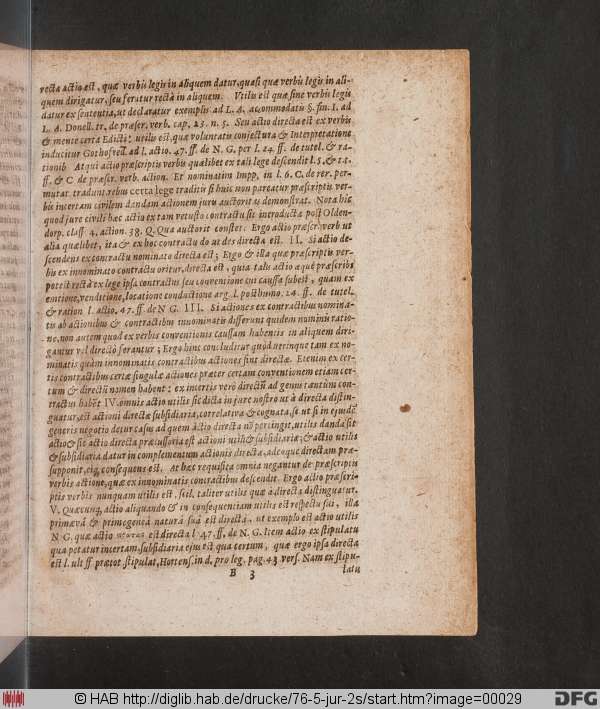 recta actio est, quæ verbis legis in aliquem datur, quasi quæ verbis legis in ali-
quem dirigatur, seu feratur rectà in aliquem. Utilis est quæ sine verbis legis
datur ex sententia, ut declaratur exemplis ad L. A. accommodatis §. fin. I. ad
L. A. Donell. tr. de præscr. verb. cap. 23. n. 5. Seu actio directa est ex verbis
& mente certa Edicti: utilis est quæ voluntatis conjectura & Interpretatione
inducitur Gothofred. ad l. actio. 47. ff. de N. G. per l. 24. ff. de tutel. & ra-
tionib At qui actio præscriptis verbis quælibet ex tali lege descendit l. 5. & t. t.
ff. & C de præscr. verb. action. Et nominatim Impp. in l. 6. C. de rer. per-
mutat. tradunt, rebus certa lege traditis si huic non pareatur præscriptis ver-
bis incertam civilem dandam actionem juris auctoritas demonstrat. Nota hic
quod jure civili hæc actio ex tam vetusto contractu sit introducta post Olden-
dorp. class. 4. action. 38. Q. Qua auctorit conster. Ergo actio præscr. verb. ut
alia quælibet, ita & ex hoc contractu do ut des directa est. II. Si actio de-
scendens ex contractu nominato directa est; Ergo & illa quæ præscriptis ver-
bis ex innominato contractu oritur, directa est, quia talis actio æquè præscribi
potest rectà ex lege ipsa contractus seu conventione cui caussa subest, quam ex
emtione, venditione, locatione conductione arg. l. posthumo. 24. ff. de tutel.
& ration l. actio. 47. ff. de N G. III. Si actiones ex contractibus nomina-
tis ab actionibus & contractibus innominatis differunt quidem nominis ratio-
ne, non autem quod ex verbis conventionis caussam habentis in aliquem diri-
gantur vel directò ferantur; Ergo hinc concluditur quod utrinque tam ex no-
minatis quàm innominatis contractibus actiones sint directæ. Etenim ex cer-
tis contractibus certæ singulæ actiones præter certam conventionem etiam cer-
tum & directũ nomen habent: ex incertis verò directũ ad genus tantùm con-
tractus habẽt IV. omnis actio utilis sic dicta in jure nostro ut à directa distin-
guatur, est actioni directæ subsidiaria, correlativa & cognata, se ut si in ejusdẽ
generis negotio detur casus ad quem actio directa nõ pertingit, utilis danda sit
actio & sic actio directa præcursoria est actioni utili & subsidiariæ; & actio utilis
& subsidiaria datur in complementum actionis directæ, adeoque directam præ-
supponit, eiq; consequens est. At hæc requisita omnia negantur de præscriptis
verbis actione, quæ ex innominatis contractibus descendit. Ergo actio præscri-
ptis verbis nunquam utilis est. scil. taliter utilis quæ à directa distinguatur.
V. Quæcunq; actio aliquando & in consequentiam utilis est respectu sui, illa
primæva & primogenea naturâ suâ est directa. ut exemplo est actio utilis
N G. quæ actio est directa l 47. ff. de N. G. Item actio ex stipulatu
qua petatur incertum, subsidiaria ejus est qua certum, quæ ergo ipsa directa
est l. ult ff prætor. stipulat, Hortens. in d. pro leg. pag. 43 vers. Nam ex stipu-
B 3 latu
© HAB http://diglib.hab.de/drucke/76-5-jur-2s/start.htm?image=00029
DFG